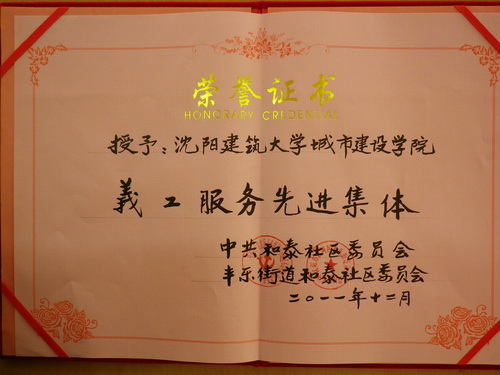 荣誉证书
HONORARY CREDENTIAL
授予：沈阳建筑大学城市建设学院
義工服务先进集体
中共和泰社区委员会
丰乐街道和泰社区委员会
二〇一一年十二月